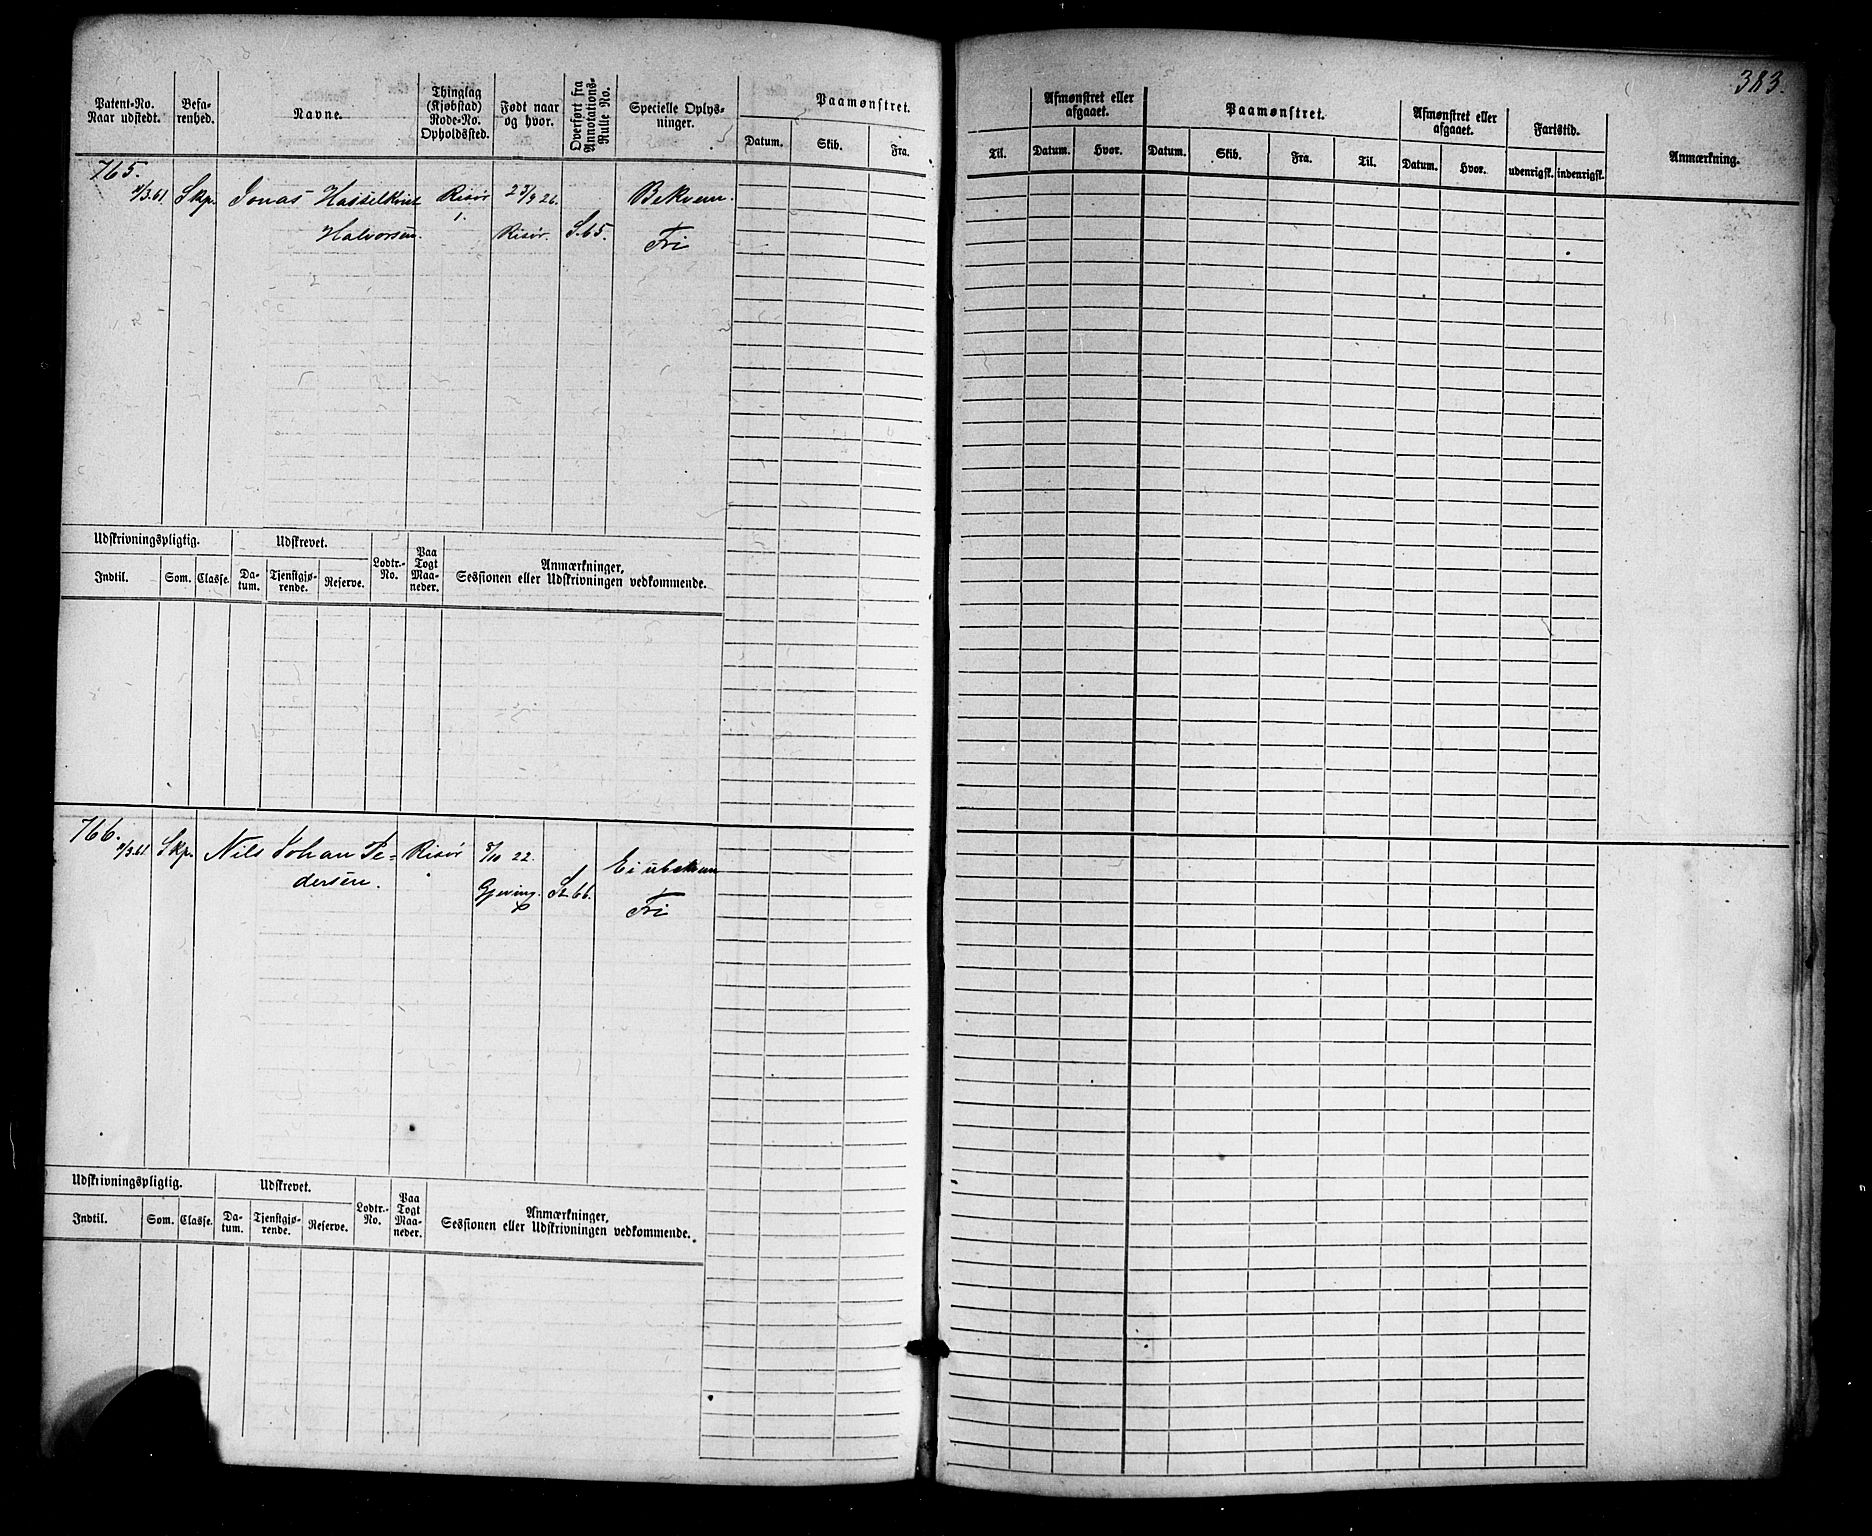 383.
Patent-No. Naar udstedt.
Befa-renhed.
Navne.
Thinglag (Kjøbstad) Rode-No. Opholdssted.
Født naar og hvor.
Overført fra Annotations-Rulle No.
Specielle Oplys-ninger.
Paamønstret.
Datum. Skib. Fra.
Til.
Afmønstret eller afgaaet.
Datum. Hvor.
Paamønstret.
Datum. Skib. Fra. Til.
Afmønstret eller afgaaet.
Datum. Hvor.
Fartstid.
udenrigsk. indenrigsk.
Anmærkning.
765.
Skp. Jonas Hasselkvist Risør 27/9 26. Bekvem.
Halvorsen. 1. Risør. S. 65. Fri
Udskrivningspligtig.
Indtil. Som. Classe.
Udskrevet.
Da-tum. Tjenstgjø-rende. Reserve.
Lodtr.-No.
Paa Togt Maa-neder.
Anmærkninger,
Sessionen eller Udskrivningen vedkommende.
766.
Skp. Nils Johan Pe- Risør 22. Ei ubekvem
dersen. Gjeving. St. 66. Fri
Udskrivningspligtig.
Indtil. Som. Classe.
Udskrevet.
Da-tum. Tjenstgjø-rende. Reserve.
Lodtr.-No.
Paa Togt Maa-neder.
Anmærkninger,
Sessionen eller Udskrivningen vedkommende.